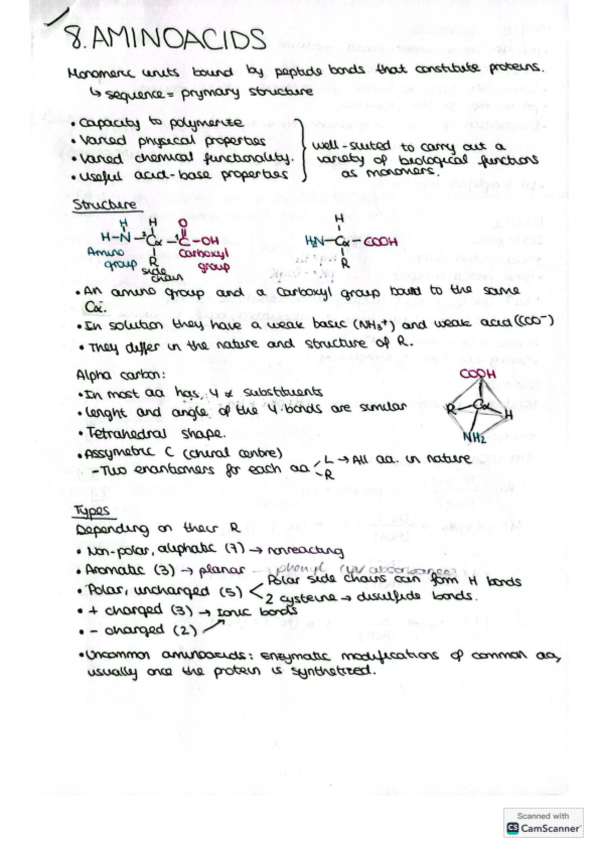 8. AMINOACIDS
Monomeric units bound by peptide bonds that constitute proteins.
↳ sequence = prymary structure
• Capacity to polymerize
• Varied physical properties
• Varied chemical functionality.
• Useful acid-base properties
well-suited to carry out a
variety of biological functions
as monomers.
Structure
H O
H-N-Cα-C-OH
H
R
Amino group
side chain
Carboxyl group
H
H₂N-Cα-COOH
R
• An amino group and a carboxyl group bound to the same
Cα.
• In solution they have a weak basic (NH₃⁺) and weak acid (COO⁻)
• They differ in the nature and structure of R.
Alpha carbon:
• In most aa has, 4 ≠ substituents
• Lenght and angle of the 4 bonds are similar
• Tetrahedral shape.
• Assymetric C (chiral centre)
- Two enantiomers for each aa
L → All aa. in nature
R
COOH
R Cα H
NH2
Types
Depending on their R
• Non-polar, aliphatic (7) → nonreacting
• Aromatic (3) → planar → phenyl (UV absorbance)
• Polar, uncharged (5)
Polar side chains can form H bonds
2 cysteine → disulfide bonds.
• + charged (3) → Ionic bonds
• - charged (2)
• Uncommon aminoacids: enzymatic modifications of common aa,
usually once the protein is synthetized.
Scanned with
CS CamScanner